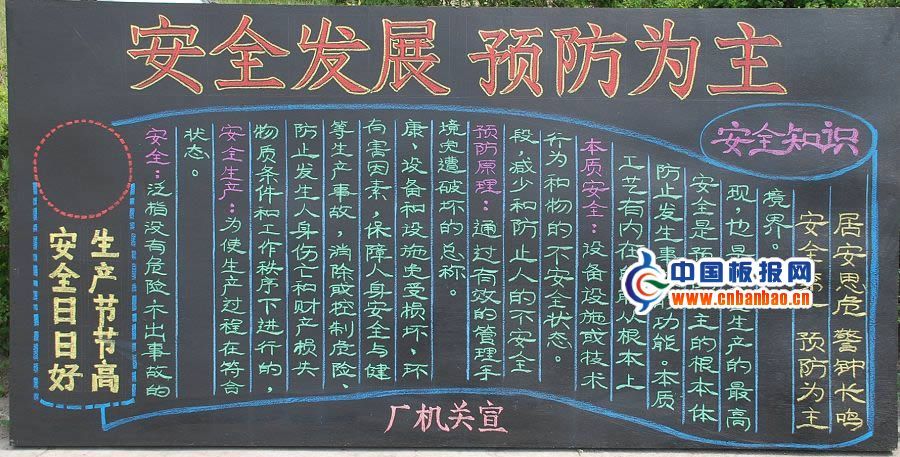 安全发展 预防为主
安全日日好
生产节节高
安全：泛指没有危险不出事故的
状态。
安全生产：为使生产过程在符合
物质条件和工作秩序下进行的，
防止发生人身伤亡和财产损失
等生产事故，消除或控制危险、
有害因素，保障人身安全与健
康、设备和设施免受损坏、环
境免遭破坏的总称。
预防原理：通过有效的管理手
段，减少和防止人的不安全
行为和物的不安全状态。
本质安全：设备设施或技术
工艺有内在能从根本上
防止发生事功能。本质
安全是预主的根本体
现，也是生产的最高
境界。
安全知识
安全 预防为主
居安思危 警钟长鸣
厂机关宣
中国板报网
www.cnbanbao.cn